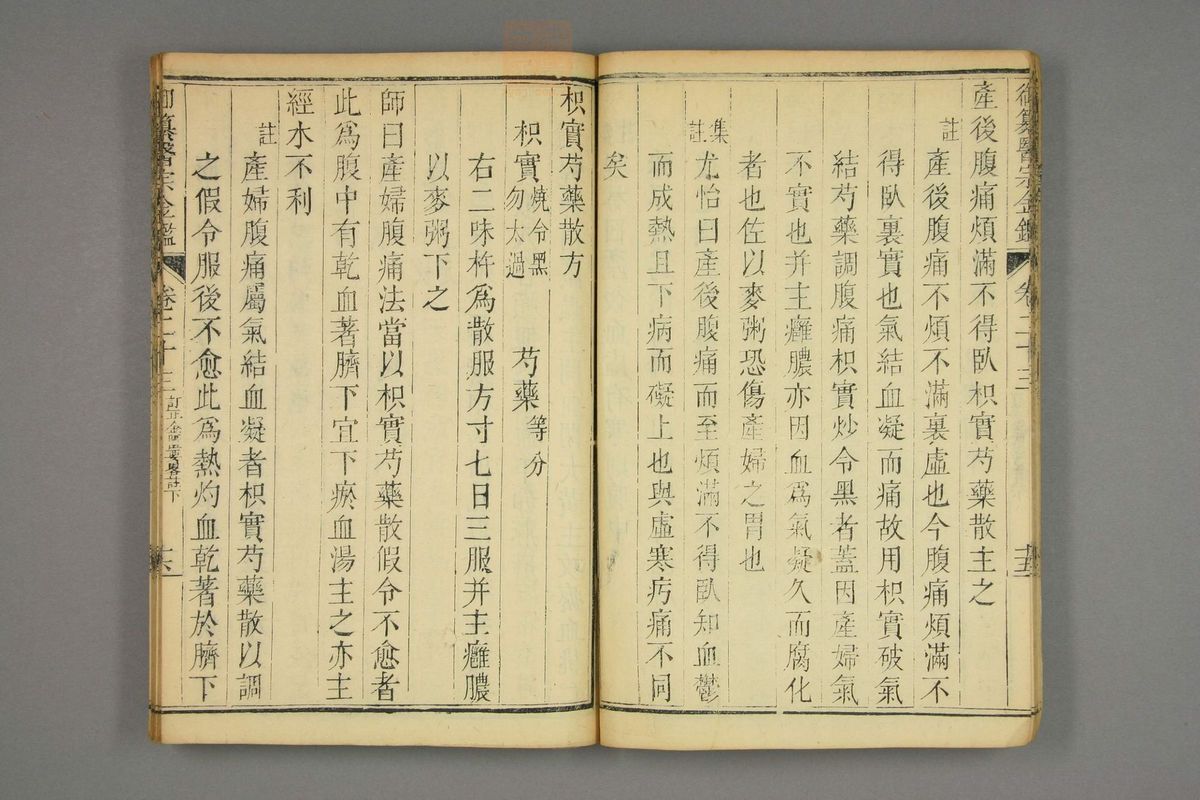 御纂醫宗金鑑 卷二十三
產後腹痛煩滿不得臥枳實芍藥散主之
註 產後腹痛不煩不滿裏虛也今腹痛煩滿不
得臥裏實也氣結血凝而痛故用枳實破氣
結芍藥調腹痛枳實炒令黑者蓋因產婦氣
不實也并主癰膿亦因血爲氣凝久而腐化
者也佐以麥粥恐傷產婦之胃也
集註 尤怡曰產後腹痛而至煩滿不得臥知血鬱
而成熱且下病而礙上也與虛寒疞痛不同
矣
枳實芍藥散方
枳實 燒令黑勿太過 芍藥 等分
右二味杵爲散服方寸七日三服并主癰膿
以麥粥下之
師曰產婦腹痛法當以枳實芍藥散假令不愈者
此爲腹中有乾血著臍下宜下瘀血湯主之亦主
經水不利
註 產婦腹痛屬氣結血凝者枳實芍藥散以調
之假令服後不愈此爲熱灼血乾著於臍下
御纂醫宗金鑑 卷二十三 訂正金匱要畧註下 十六